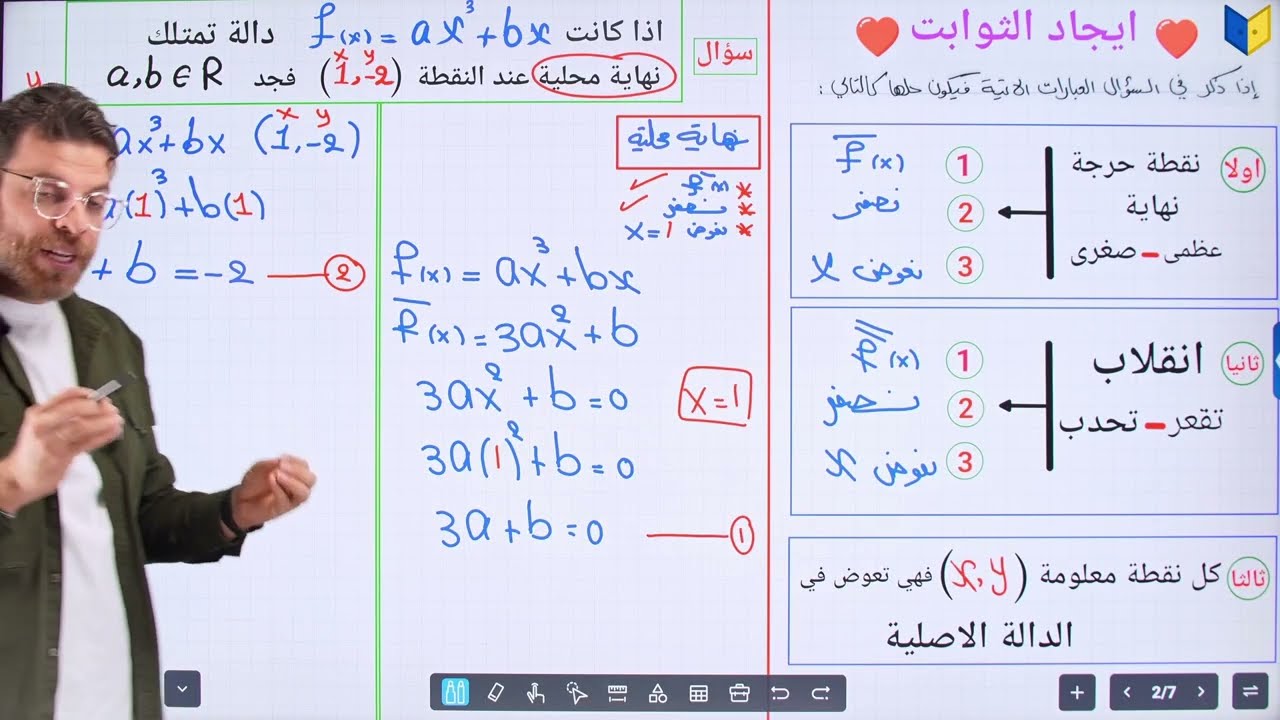 ايجاد الثوابت
إذا ذكر في السؤال العبارات الاتية فيكون حلها كالتالي :
اولا
نقطة حرجة
نهاية
عظمى - صغرى
1 f̅(x)
2 نصفر
3 نعوض x
ثانيا
انقلاب
تقعر - تحدب
1 f̿(x)
2 نصفر
3 نعوض x
ثالثا
كل نقطة معلومة (x,y) فهي تعوض في
الدالة الاصلية
سؤال
اذا كانت f(x) = ax³+bx دالة تمتلك
x y
نهاية محلية عند النقطة (1,-2) فجد a,b∈R
نهاية محلية
* f̅(x) ✓
* نصفر ✓
* نعوض x=1
f(x) = ax³+bx
f̅(x) = 3ax²+b
3ax²+b=0
x=1
3a(1)²+b=0
3a+b=0 ——①
y
x y
ax³+bx (1,-2)
(1)³+b(1)
+b=-2 ——②
2/7